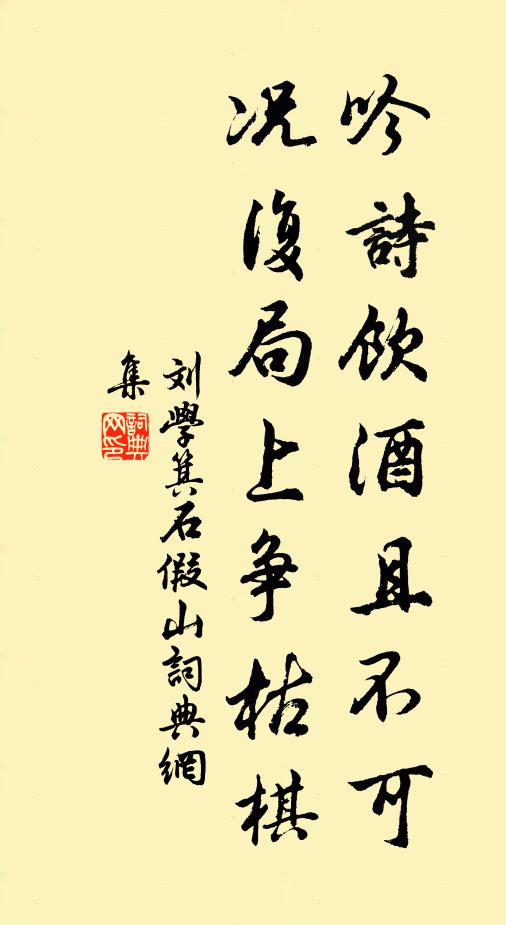 吟詩飲酒且不可
况復局上争枯棋
刘學箕石假山詞典網
集
詞典網印